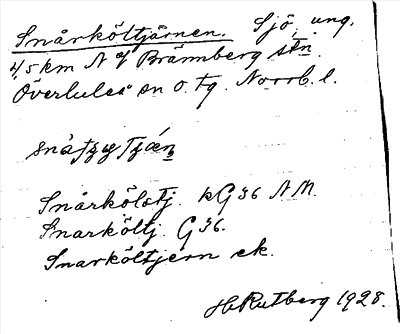 Snårköltjärnen. Sjö, ung.
4,5 km N of Brännberg stn.
Överluleå sn o. tg. Norrb. l.
Snårkölstj. kG36 N.M.
Snarköltj. G36.
Snarköltjern ek.
H. Rutberg 1928.